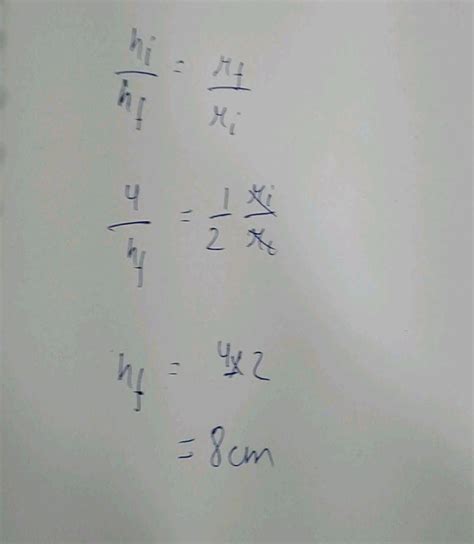 hi/hf = rf/ri
4/hf = 1/2 ri/ri
hf = 4x2
= 8cm